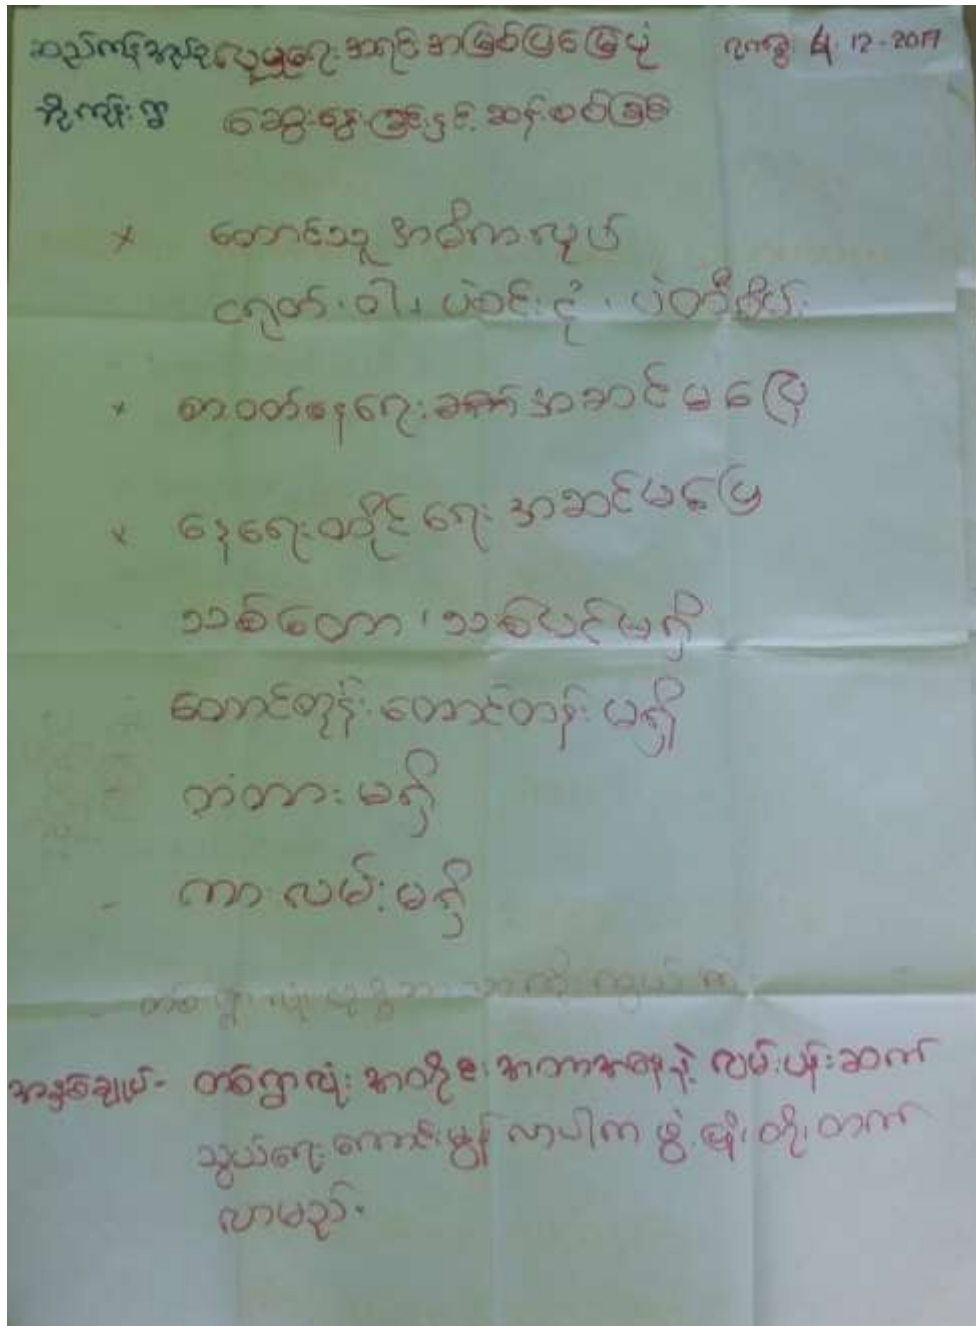 လူမှုရေး အရင်းအမြစ်ပြမြေပုံ ရက်စွဲ 4. 12-2017
ဆွေးနွေးခြင်းနှင့် ဆန်းစစ်ခြင်း
× တောင်သူ အဓိကလုပ်
ငရုတ်၊ ဝါ၊ ပဲစင်းငုံ၊ ပဲတီစိမ်း
× စားဝတ်နေရေးခက် အဆင်မပြေ
× နေရေးထိုင်ရေး အဆင်မပြေ
သစ်တော၊ သစ်ပင်မရှိ
တောင်ကုန်း တောင်တန်း မရှိ
တံတား မရှိ
- ကား လမ်း မရှိ
အနှစ်ချုပ်- တစ်ရွာလုံး အတိုင်း အတာအနေနဲ့ လမ်းပန်းဆက်
သွယ်ရေး ကောင်းမွန် လာပါက ဖွံ့ဖြိုး တိုးတက်
လာမည်။